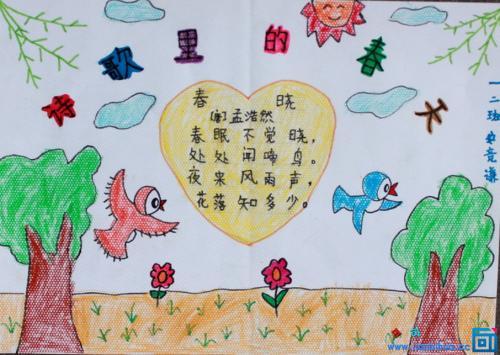 诗歌里的春天
春 晓
[唐]孟浩然
春眠不觉晓，
处处闻啼鸟。
夜来风雨声，
花落知多少。
二班